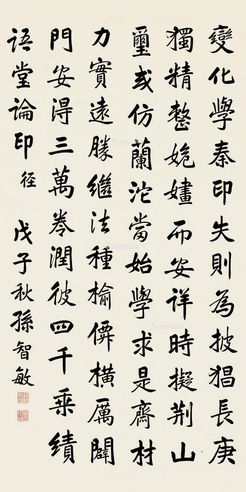 變化學秦印失則為披猖長庚
獨精整嫓嫿而安詳時擬荆山
璽或仿蘭沱當始學求是齋材
力實遠勝繼法種榆僊橫厲闢
門安得三萬卷潤彼四千乘績
語堂論印 径
戊子秋孫智敏